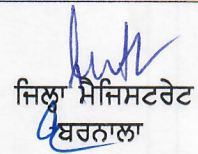 ਜਿਲ੍ਹਾ ਮੈਜਿਸਟਰੇਟ
ਬਰਨਾਲਾ